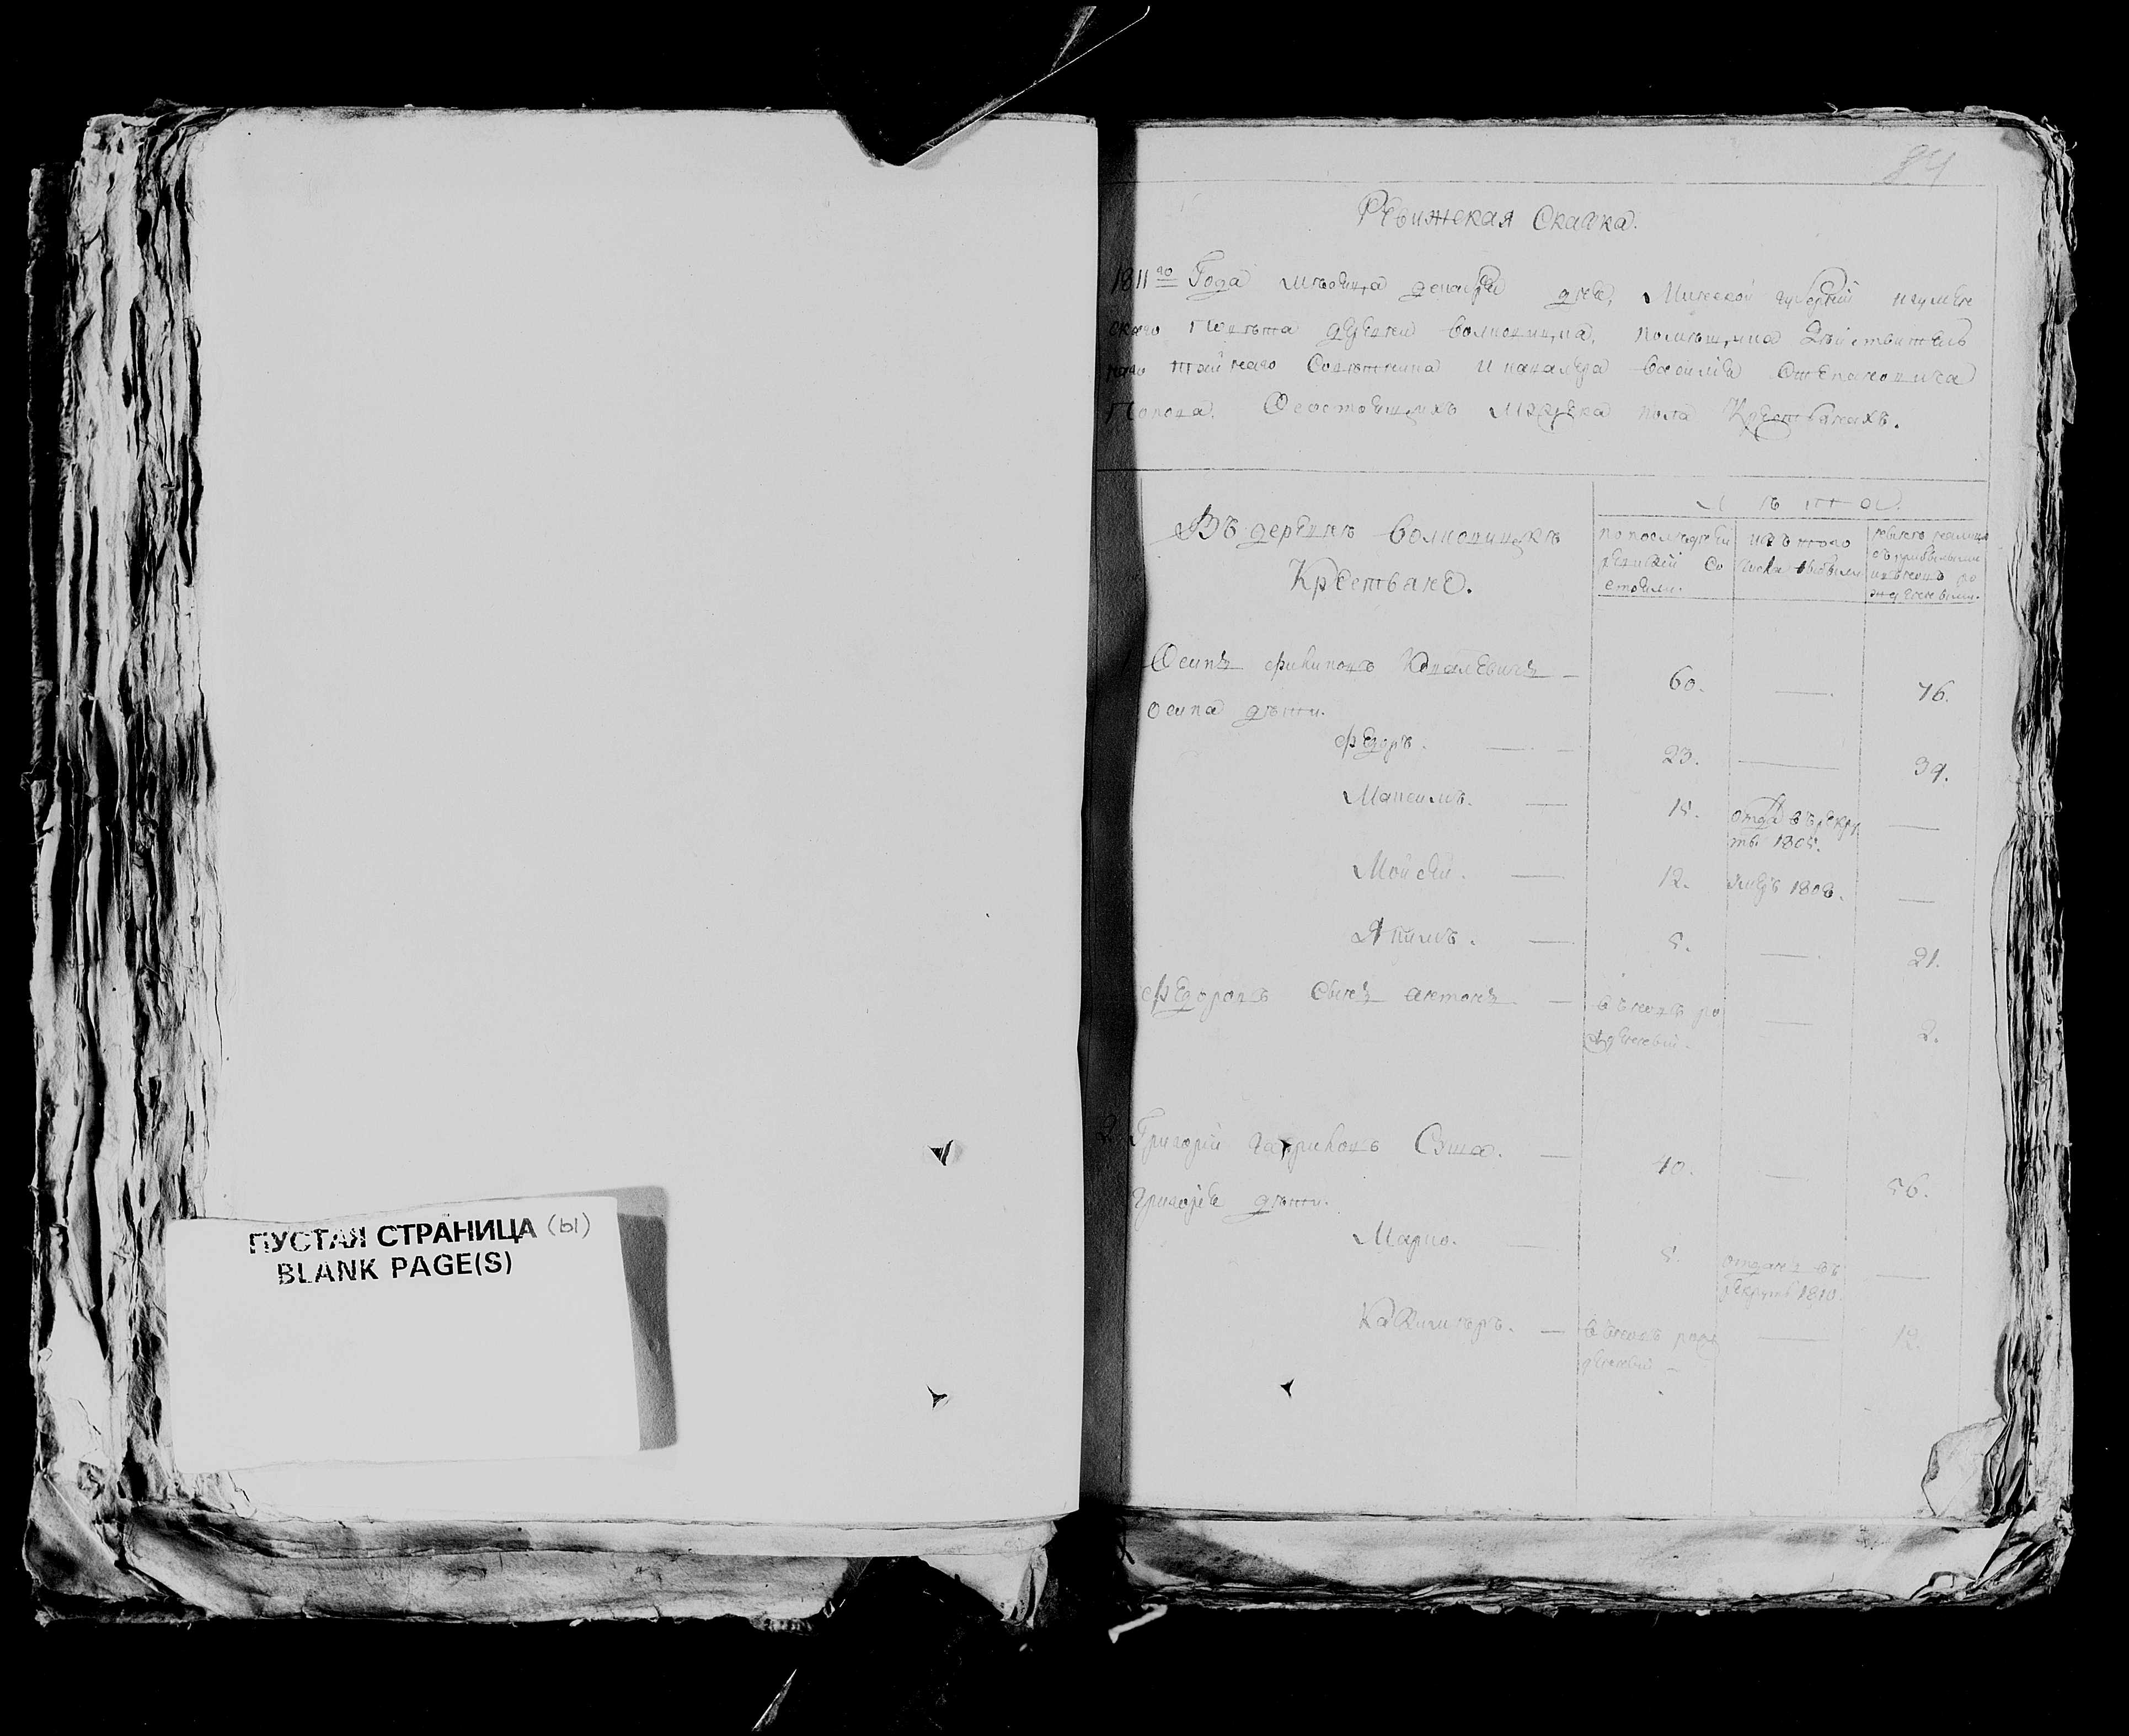 ПУСТАЯ СТРАНИЦА (ы)
BLANK PAGE(S)
84
Ревижская Скаска.
1811го Года мѣсяца декабря дня, Минской губернїи игумен
скаго Повѣта деревни волковицка, помѣщика Дѣйствитель
наго тайнаго Совѣтника и кавалера василїя Степановича
Попова. О состоящихъ мужеска пола Крестьянахъ.
Въ деревнѣ волковицкѣ
Крестьяне.
Лѣта.
по последней
ревизїи Со
стояли.
изъ того
числа выбыли
ныне на лицо
съ прибылыми
и вновь ро
жденными.
1 Осипъ филиповъ Ковалевичъ — 60. — 76.
осипа дѣти.
федоръ. — 23. — 39.
Максимъ. — 15. отда въ рекру
ты 1805. —
Мойсей. — 12. умеръ 1808. —
Якимъ. — 5. — 21.
федоровъ Сынъ антонъ — вновь ро
жденный. — 2.
2 Григорїй гавриловъ Суша. — 40. — 56.
григорїя дѣти.
Марко. — 5. отданъ въ
рекруты 1810. —
Казимиръ. — вновь рож
денный — — 12.